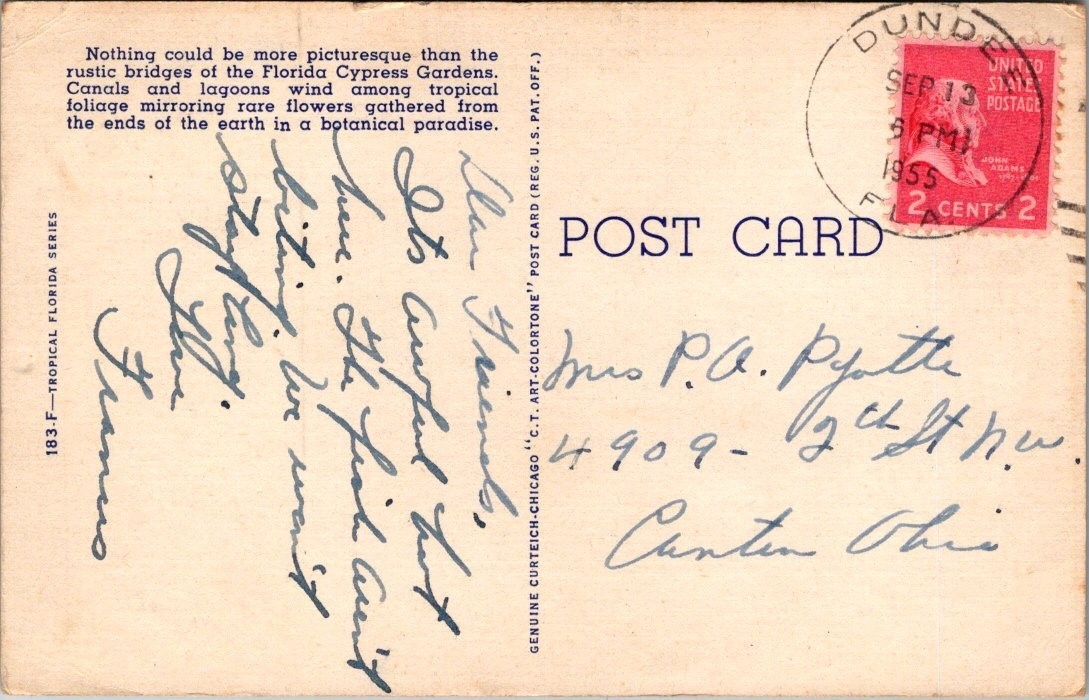 Nothing could be more picturesque than the
rustic bridges of the Florida Cypress Gardens.
Canals and lagoons wind among tropical
foliage mirroring rare flowers gathered from
the ends of the earth in a botanical paradise.
183-F—TROPICAL FLORIDA SERIES
Dear Friends,
Its awful hot
here. The fish aren't
biting. We won't
stay long.
Love
Frances
GENUINE CURTEICH-CHICAGO "C.T. ART-COLORTONE" POST CARD (REG. U.S. PAT. OFF.)
POST CARD
DUNDEE
SEP 13
PM
1955
FLA.
UNITED
STATES
POSTAGE
JOHN
ADAMS
2 CENTS 2
Mrs P.A. Pyatte
4909- 9th St N.W.
Canton Ohio